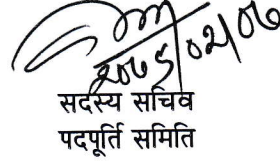 २०७९/०२/०७
सदस्य सचिव
पदपूर्ति समिति